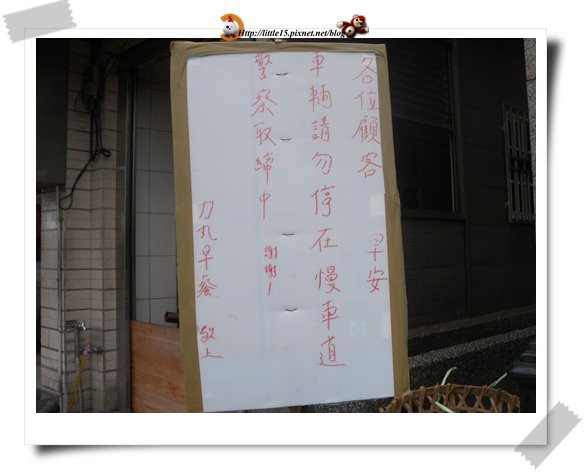 Http://little15.pixnet.net/blog
各位顧客 早安
車輛請勿停在慢車道
警察取締中 謝謝!
力丸早餐 敬上